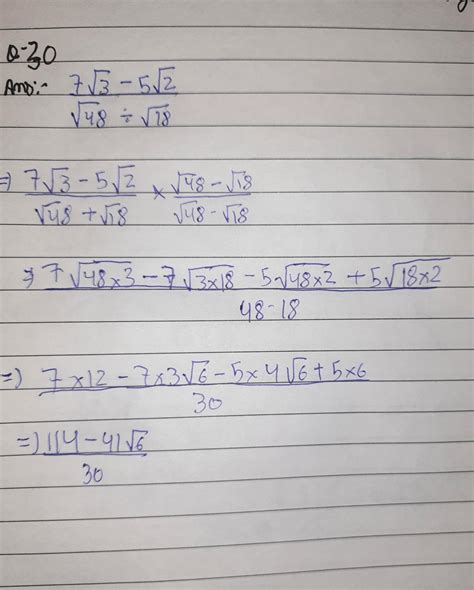 Q-30
Ans:- 7√3 - 5√2
√48 ÷ √18
=) 7√3 - 5√2 × √48 - √18
√48 + √18 √48 - √18
=) 7√48×3 - 7√3×18 - 5√48×2 + 5√18×2
48-18
=) 7×12 - 7×3√6 - 5×4√6 + 5×6
30
=) 114 - 41√6
30